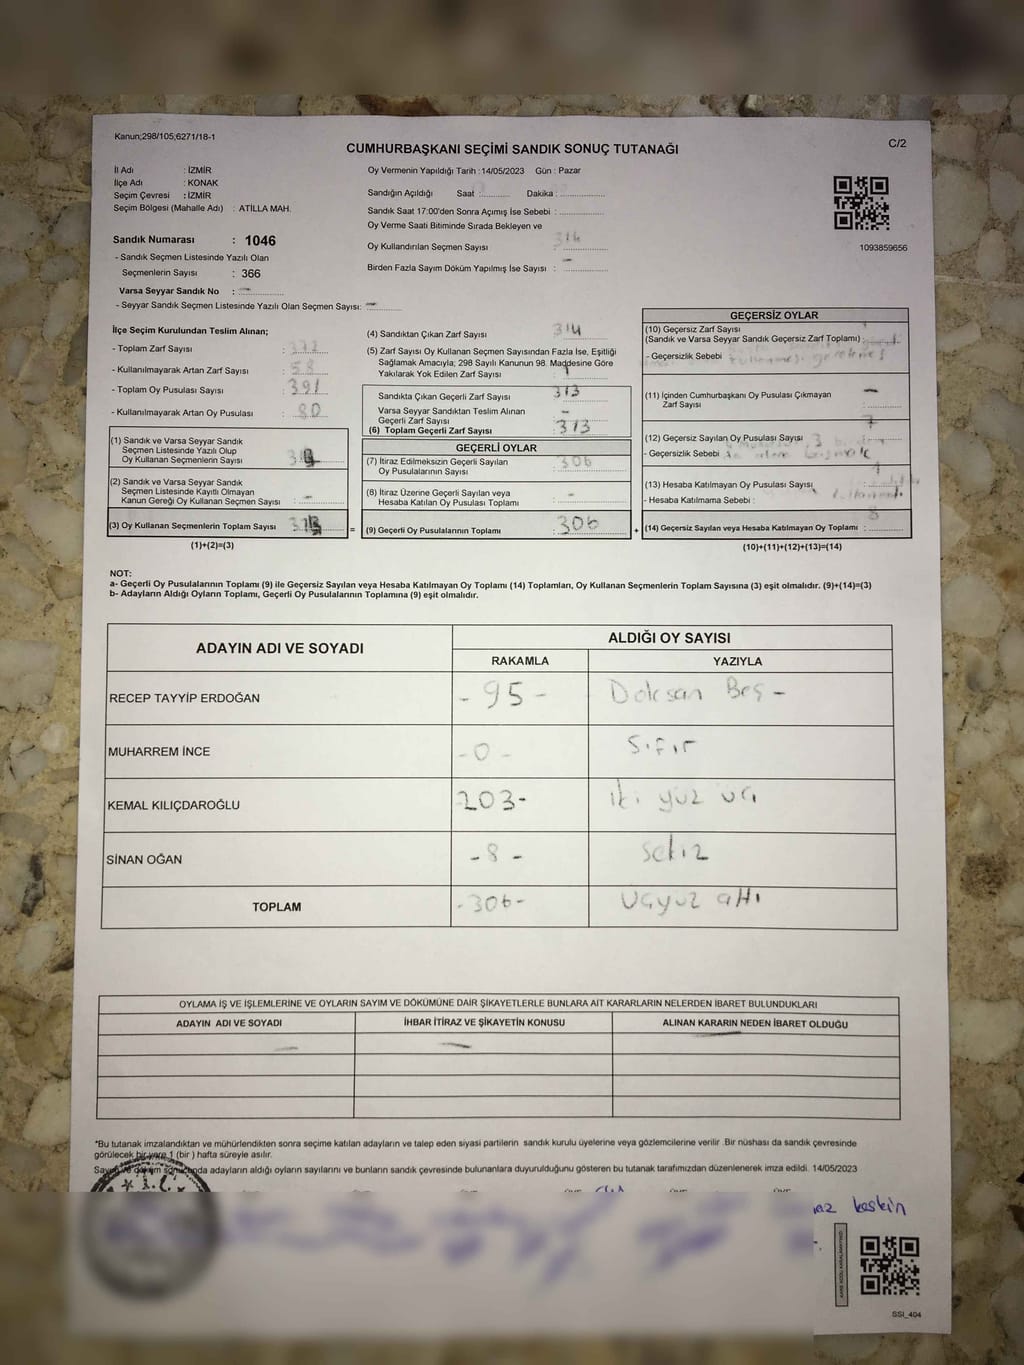 Kanun;298/105;6271/18-1
CUMHURBAŞKANI SEÇİMİ SANDIK SONUÇ TUTANAĞI
C/2
İl Adı : İZMİR
İlçe Adı : KONAK
Seçim Çevresi : İZMİR
Seçim Bölgesi (Mahalle Adı) : ATİLLA MAH.
Oy Vermenin Yapıldığı Tarih : 14/05/2023 Gün : Pazar
Sandığın Açıldığı Saat : Dakika :
Sandık Saat 17:00'den Sonra Açımış İse Sebebi :
Oy Verme Saati Bitiminde Sırada Bekleyen ve
Oy Kullandırılan Seçmen Sayısı : 314
Birden Fazla Sayım Döküm Yapılmış İse Sayısı : -
1093859656
Sandık Numarası : 1046
- Sandık Seçmen Listesinde Yazılı Olan
Seçmenlerin Sayısı : 366
Varsa Seyyar Sandık No : -
- Seyyar Sandık Seçmen Listesinde Yazılı Olan Seçmen Sayısı: -
İlçe Seçim Kurulundan Teslim Alınan;
- Toplam Zarf Sayısı :
- Kullanılmayarak Artan Zarf Sayısı : 58
- Toplam Oy Pusulası Sayısı : 391
- Kullanılmayarak Artan Oy Pusulası : 80
(1) Sandık ve Varsa Seyyar Sandık
Seçmen Listesinde Yazılı Olup
Oy Kullanan Seçmenlerin Sayısı :
(2) Sandık ve Varsa Seyyar Sandık
Seçmen Listesinde Kayıtlı Olmayan
Kanun Gereği Oy Kullanan Seçmen Sayısı : -
(3) Oy Kullanan Seçmenlerin Toplam Sayısı :
(1)+(2)=(3)
(4) Sandıktan Çıkan Zarf Sayısı : 314
(5) Zarf Sayısı Oy Kullanan Seçmen Sayısından Fazla İse, Eşitliği
Sağlamak Amacıyla; 298 Sayılı Kanunun 98. Maddesine Göre
Yakılarak Yok Edilen Zarf Sayısı : 1
Sandıkta Çıkan Geçerli Zarf Sayısı : 313
Varsa Seyyar Sandıktan Teslim Alınan
Geçerli Zarf Sayısı : -
(6) Toplam Geçerli Zarf Sayısı : 313
GEÇERLİ OYLAR
(7) İtiraz Edilmeksizin Geçerli Sayılan
Oy Pusulalarının Sayısı : 306
(8) İtiraz Üzerine Geçerli Sayılan veya
Hesaba Katılan Oy Pusulası Toplamı : -
= (9) Geçerli Oy Pusulalarının Toplamı : 306 +
GEÇERSİZ OYLAR
(10) Geçersiz Zarf Sayısı
(Sandık ve Varsa Seyyar Sandık Geçersiz Zarf Toplamı) :
- Geçersizlik Sebebi
(11) İçinden Cumhurbaşkanı Oy Pusulası Çıkmayan
Zarf Sayısı : -
(12) Geçersiz Sayılan Oy Pusulası Sayısı : 7
- Geçersizlik Sebebi
(13) Hesaba Katılmayan Oy Pusulası Sayısı : 1
- Hesaba Katılmama Sebebi :
(14) Geçersiz Sayılan veya Hesaba Katılmayan Oy Toplamı : 8
(10)+(11)+(12)+(13)=(14)
NOT:
a- Geçerli Oy Pusulalarının Toplamı (9) ile Geçersiz Sayılan veya Hesaba Katılmayan Oy Toplamı (14) Toplamları, Oy Kullanan Seçmenlerin Toplam Sayısına (3) eşit olmalıdır. (9)+(14)=(3)
b- Adayların Aldığı Oyların Toplamı, Geçerli Oy Pusulalarının Toplamına (9) eşit olmalıdır.
ADAYIN ADI VE SOYADI
ALDIĞI OY SAYISI
RAKAMLA YAZIYLA
RECEP TAYYİP ERDOĞAN - 95 - Doksan Beş -
MUHARREM İNCE - 0 - Sıfır
KEMAL KILIÇDAROĞLU 203- iki yüz üç
SİNAN OĞAN - 8 - sekiz
TOPLAM - 306 - üçyüz altı
OYLAMA İŞ VE İŞLEMLERİNE VE OYLARIN SAYIM VE DÖKÜMÜNE DAİR ŞİKAYETLERLE BUNLARA AİT KARARLARIN NELERDEN İBARET BULUNDUKLARI
ADAYIN ADI VE SOYADI İHBAR İTİRAZ VE ŞİKAYETİN KONUSU ALINAN KARARIN NEDEN İBARET OLDUĞU
*Bu tutanak imzalandıktan ve mühürlendikten sonra seçime katılan adayların ve talep eden siyasi partilerin sandık kurulu üyelerine veya gözlemcilerine verilir .Bir nüshası da sandık çevresinde
görülecek bir yere 1 (bir ) hafta süreyle asılır.
Sayım ve döküm sonucunda adayların aldığı oyların sayılarını ve bunların sandık çevresinde bulunanlara duyurulduğunu gösteren bu tutanak tarafımızdan düzenlenerek imza edildi. 14/05/2023
T.C.
keskin
SSI_404